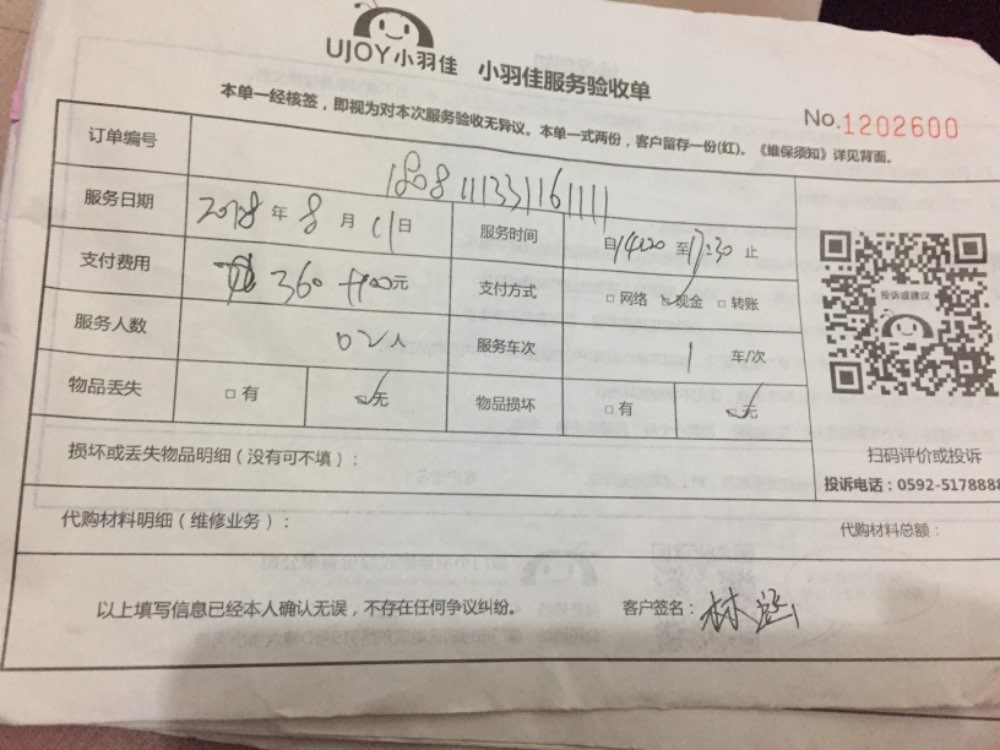 UJOY小羽佳 小羽佳服务验收单
No.1202600
本单一经核签，即视为对本次服务验收无异议。本单一式两份，客户留存一份(红)。《维保须知》详见背面。
订单编号 1808111331161111
服务日期 2018年8月11日 服务时间 自14:20至17:30止
支付费用 360+100元 支付方式 □网络 □现金 □转账
服务人数 02人 服务车次 1 车/次
物品丢失 □有 □无 物品损坏 □有 □无
投诉或建议
扫码评价或投诉
投诉电话：0592-5178888
损坏或丢失物品明细（没有可不填）：
代购材料明细（维修业务）： 代购材料总额：
以上填写信息已经本人确认无误，不存在任何争议纠纷。 客户签名：林